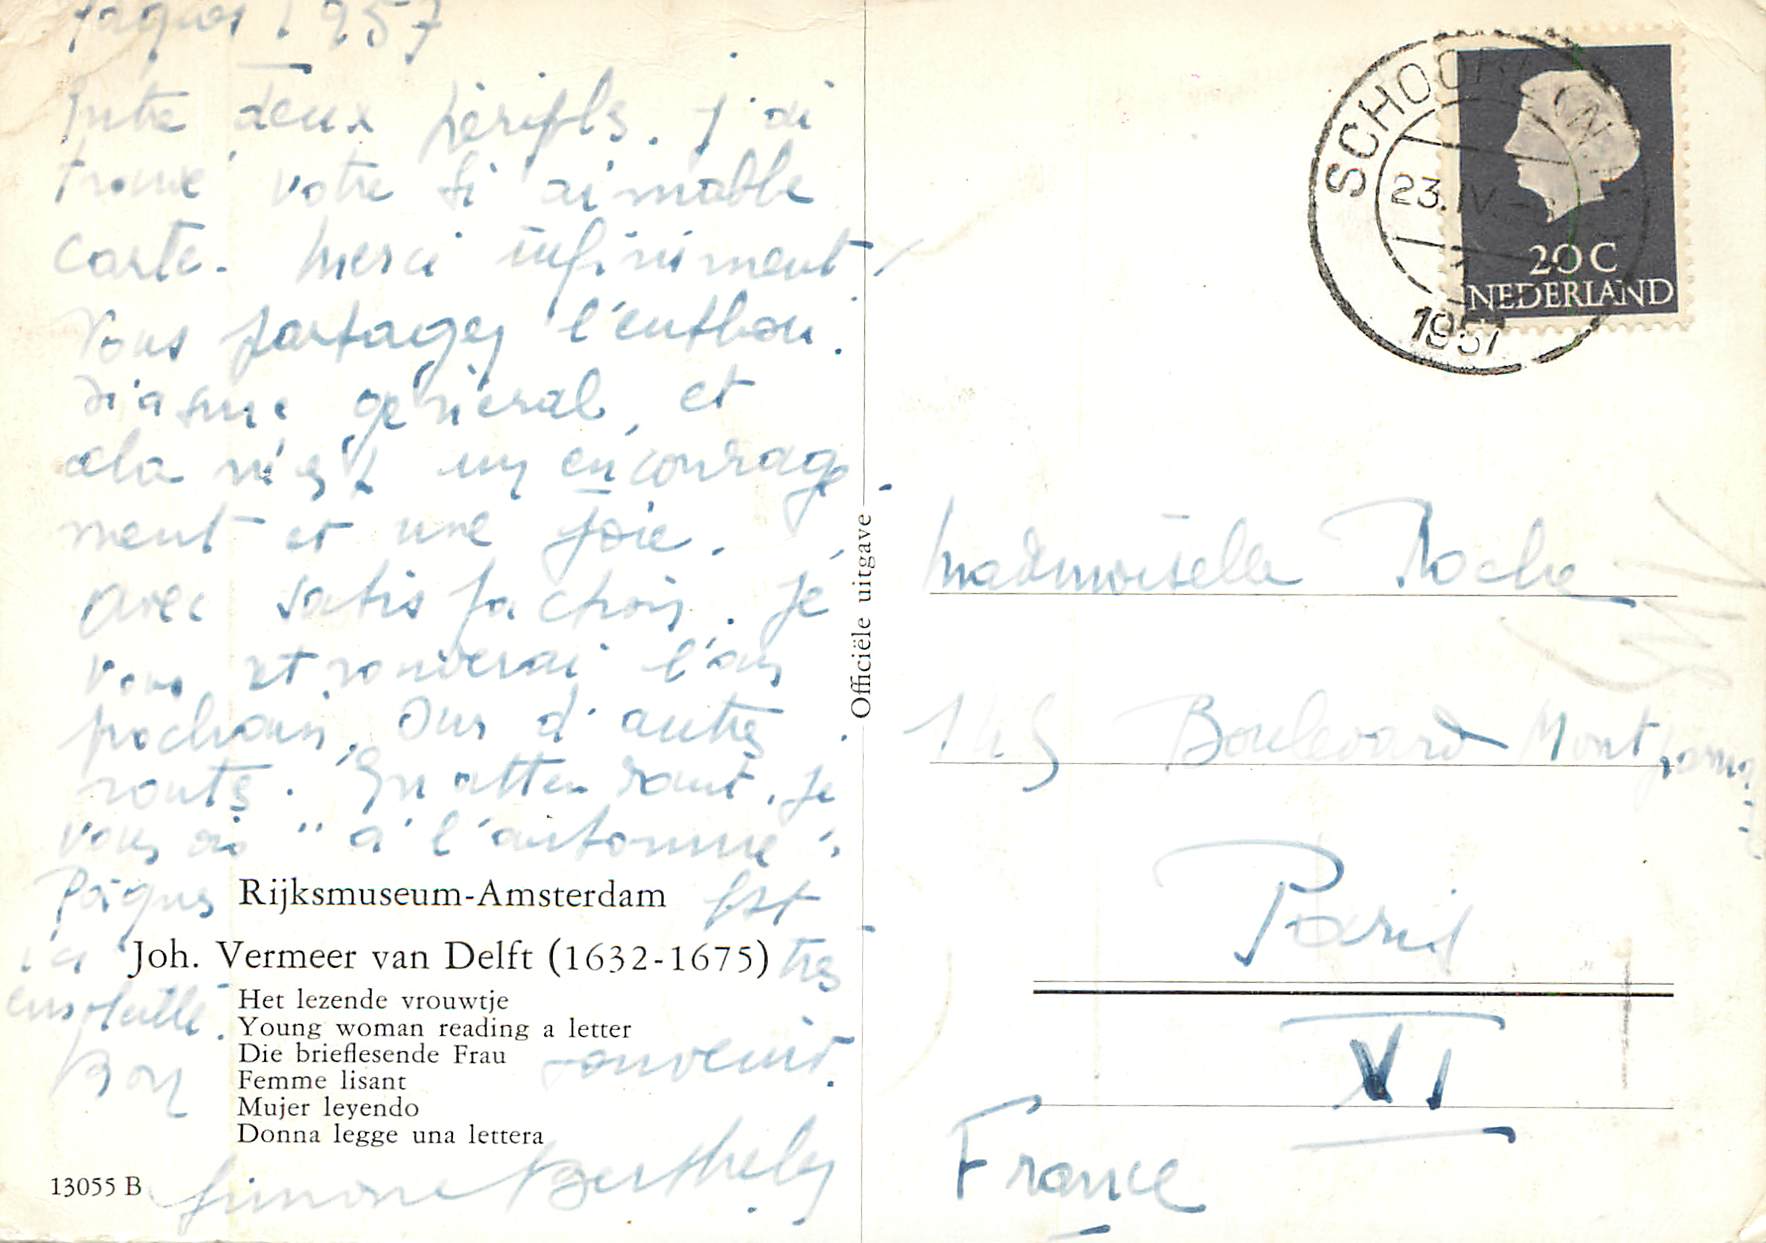 Pâques 1957
Entre deux périples, j'ai
trouvé votre si aimable
carte. Merci infiniment
Vous partagez l'enthou-
siasme général, et
cela m'est un encourage-
ment et une joie.
avec satisfaction. Je
vous retrouverai l'an
prochain, sur d'autres
routes. En attendant, je
vous dis "à l'automne".
Pâques est
ici très
ensoleillé.
Bon souvenir.
Simone Berthely
Rijksmuseum-Amsterdam
Joh. Vermeer van Delft (1632-1675)
Het lezende vrouwtje
Young woman reading a letter
Die brieflesende Frau
Femme lisant
Mujer leyendo
Donna legge una lettera
13055 B
Officiële uitgave
SCHOORL (N.H.)
23.IV.
1957
20 C
NEDERLAND
Mademoiselle Roche
145 Boulevard Montparnasse
Paris
VI
France